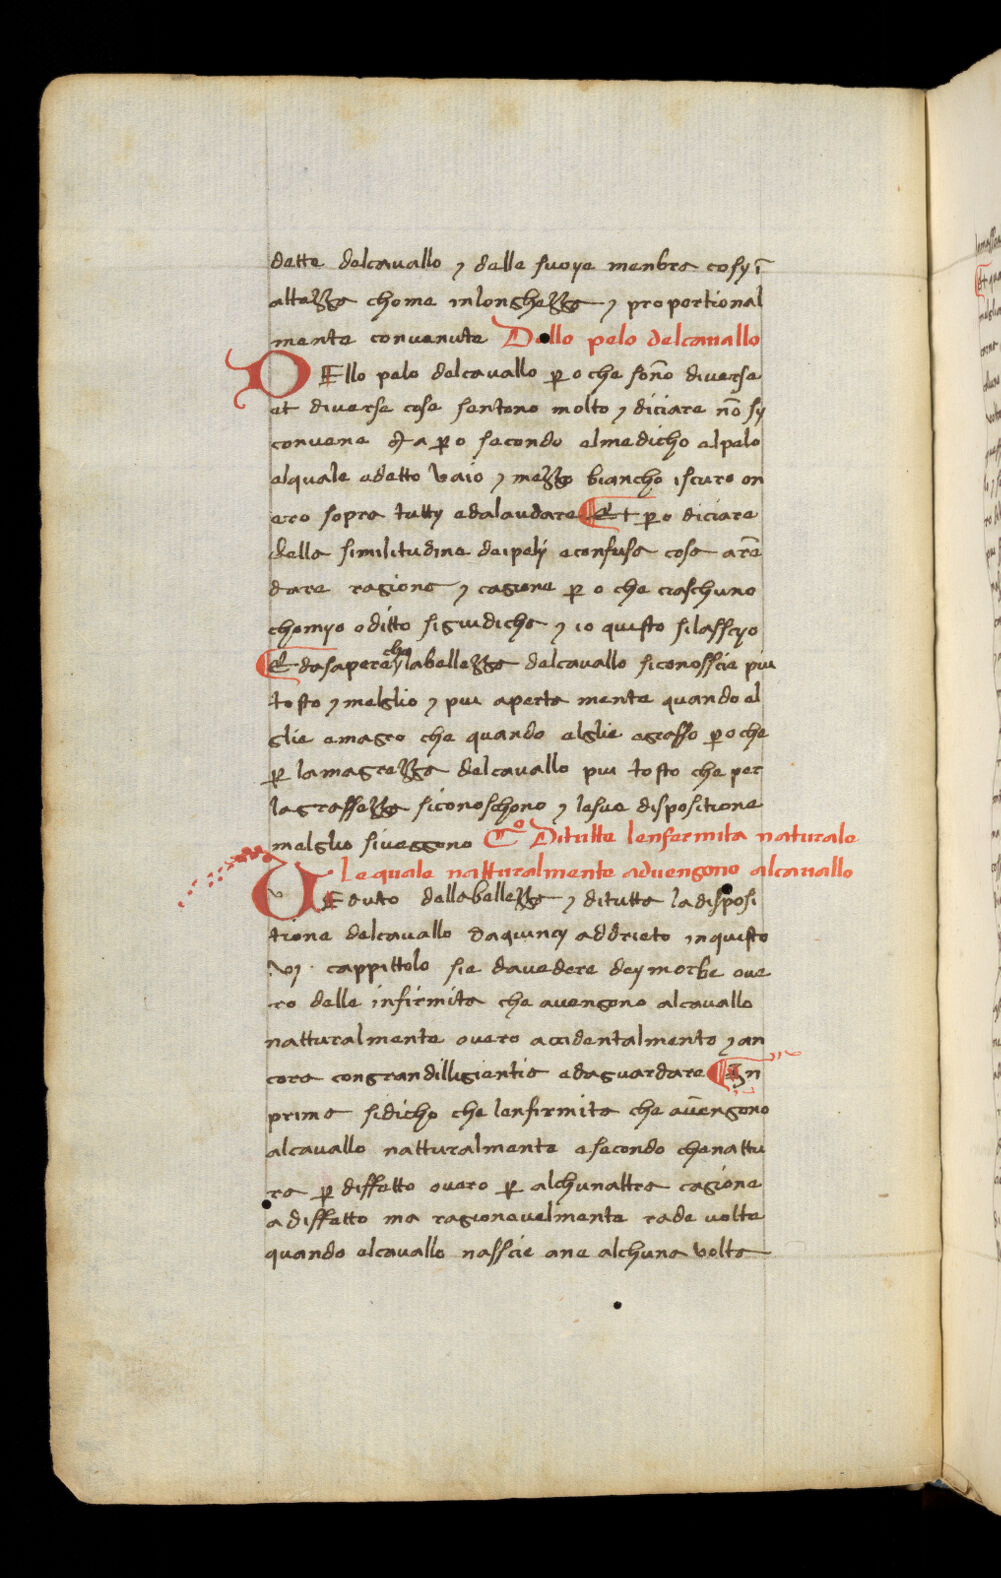 dette delcauallo ⁊ delle suoye menbra cosy ī
altezza chome inlonghezza ⁊ proportional
mente convenute Dello pelo delcauallo
DEllo pelo delcauallo ꝑ o che sōno diverse
et diverse cose sentono molto ⁊ diciare nōsy
convene ꝑ o secondo elmedicho elpelo
elquale edetto vaio ⁊ mezzo biancho iscuro on
ero sopra tutty edalaudare Et ꝑo diciare
della similitudine deipely econfusa cosa arē
dare ragione ⁊ cagione ꝑ o che ciaschuno
chomyo oditto sigiudicha ⁊ io quisto silasscyo
E dasapere chy labellezza delcauallo siconosscie piu
tosto ⁊ melglio ⁊ piu aperta mente quando el
glie emagro che quando elglie egrasso ꝑoche
ꝑ lamagrezza delcauallo piu tosto che per
lagrassezza siconoschono ⁊ lesue dispositione
melglio siueggono Cº Ditutte lenfermita naturale
Le quale natturalmente aduengono alcauallo
VEduto dellabellezza ⁊ ditutta ladisposi
tione delcauallo daquincy addrieto inquisto
vj · cappittolo sie dauedere deymorbe oue
ro delle infirmita che auengono alcauallo
natturalmente ouero accidentalmento ⁊ an
cora congrandilligientia edaguardare In
prima sidicho che lenfirmita che auēngono
alcauallo natturalmente esecondo chenattu
ra ꝑ diffetto ouero ꝑ alchunaltra cagione
a diffetto ma ragioneuelmente rade volte
quando elcauallo nasscie ane alchuna volta